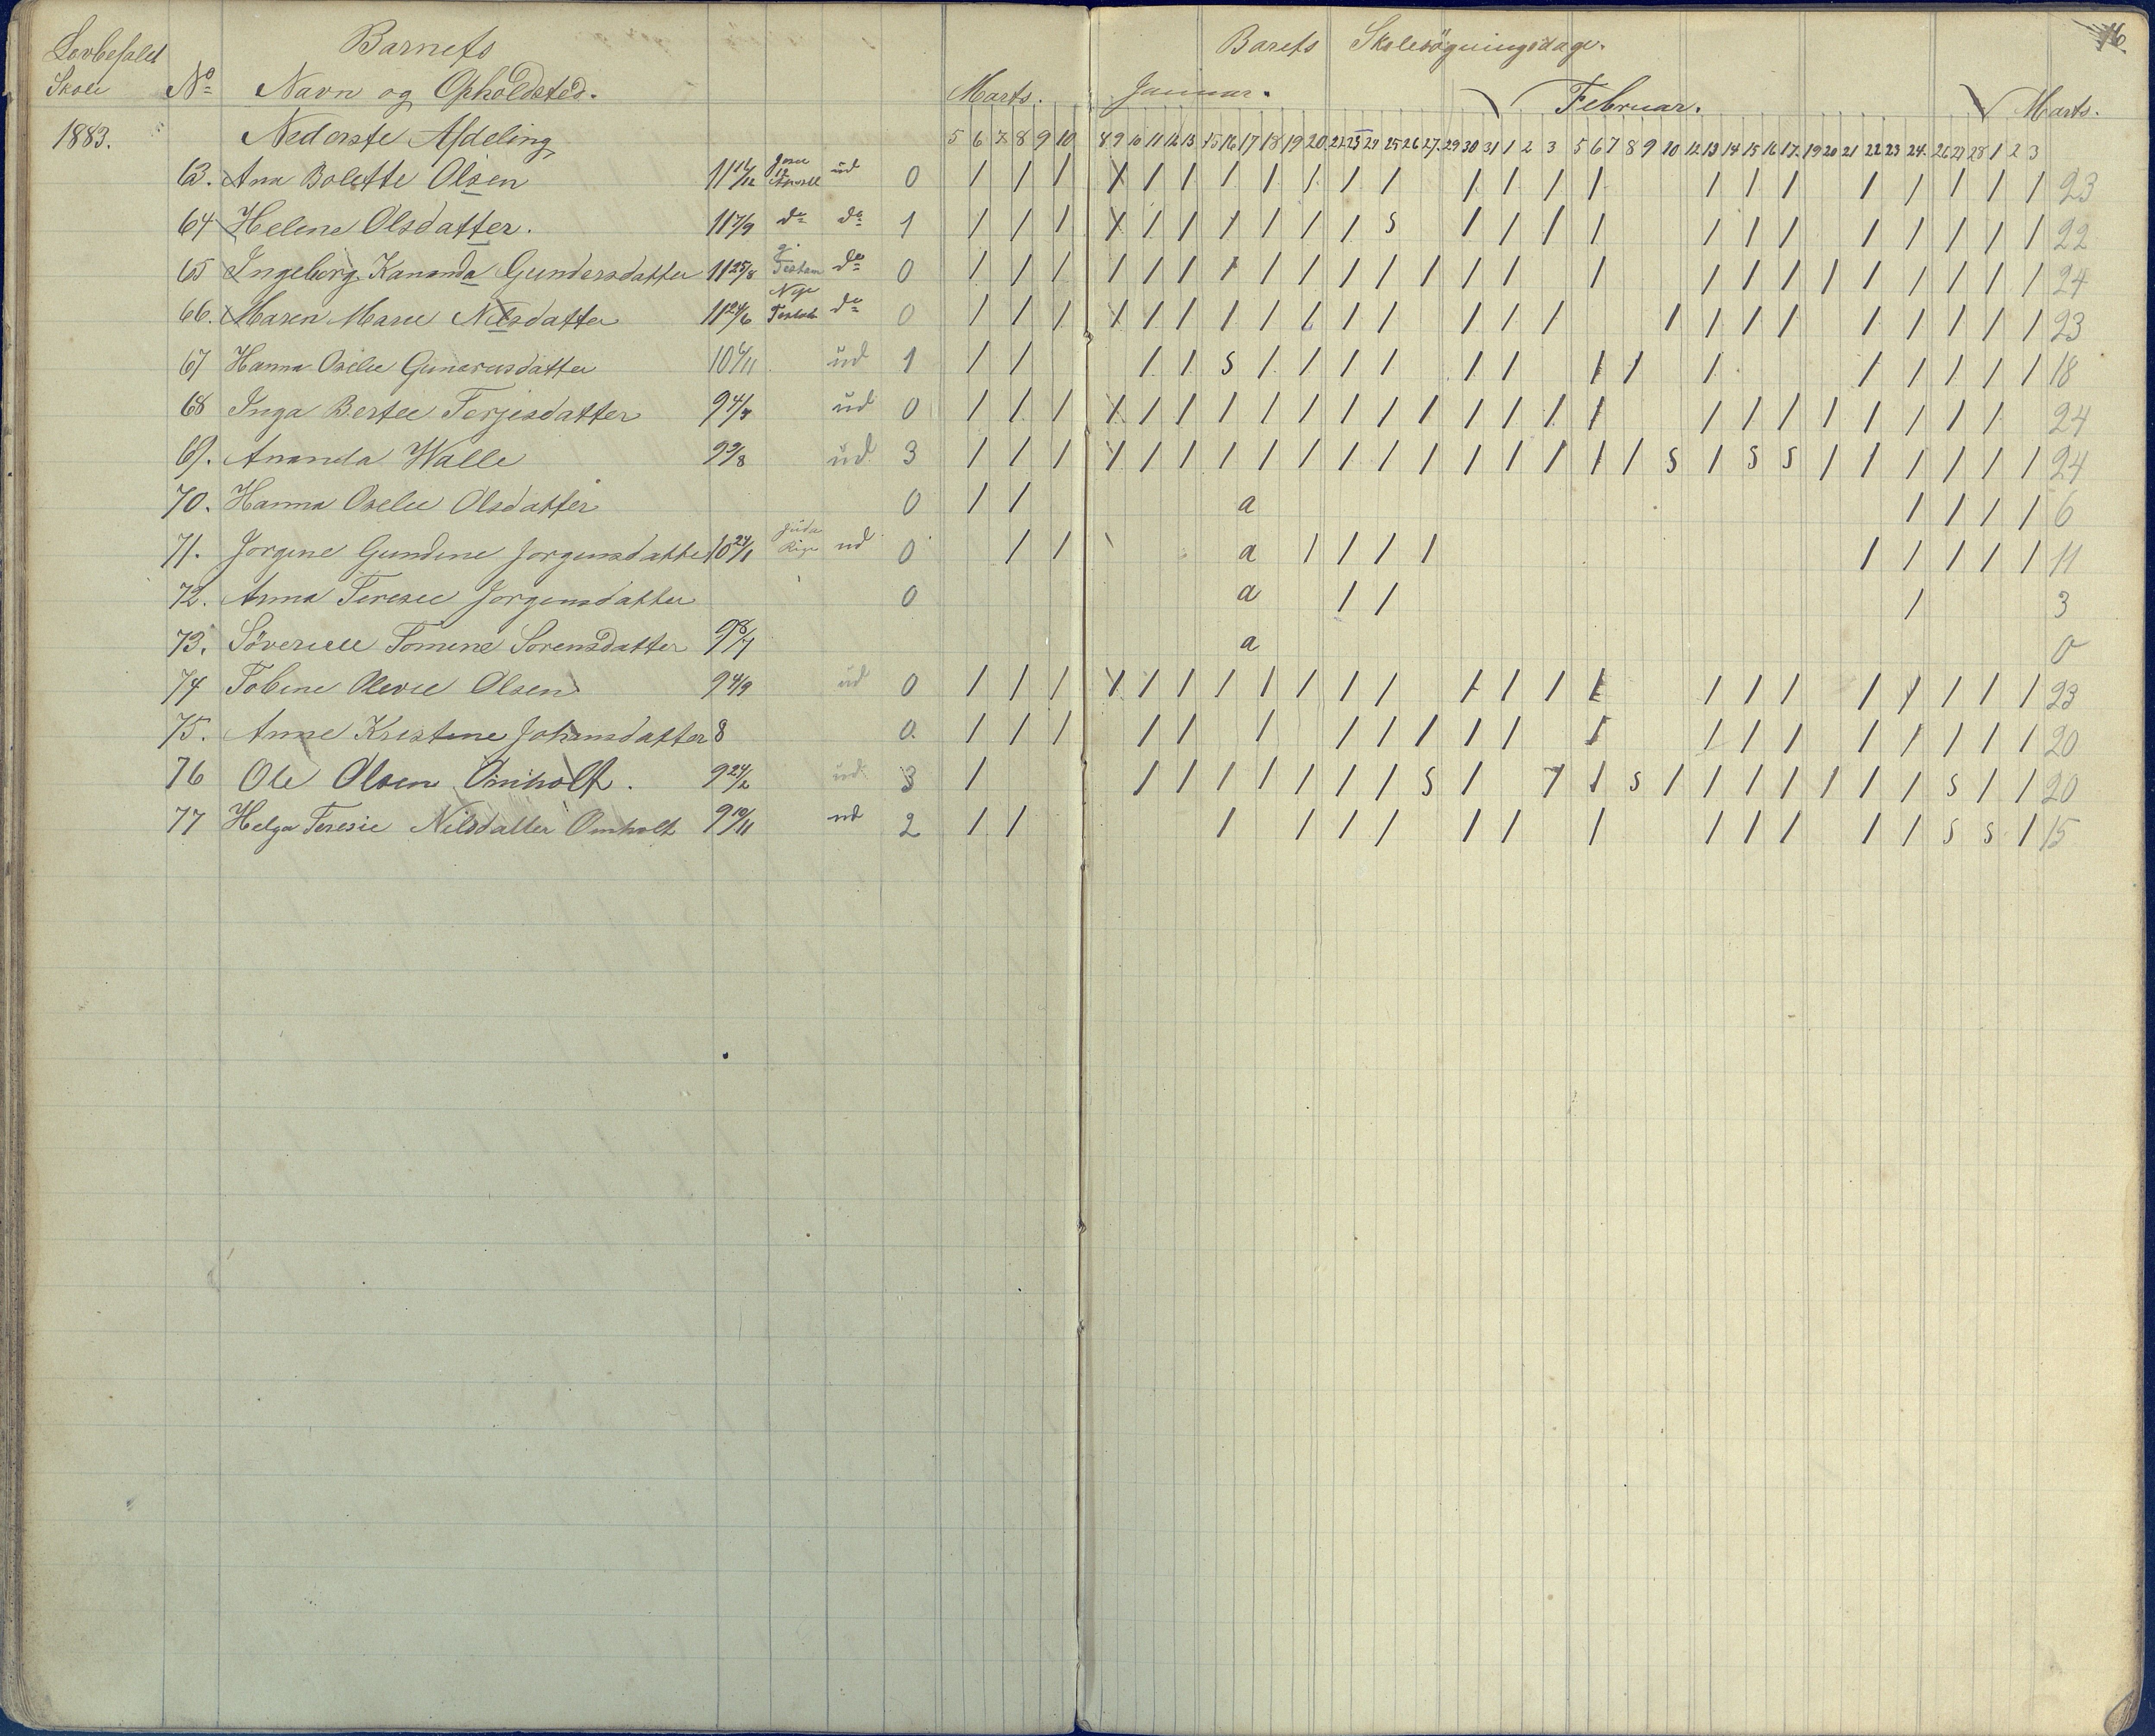 Lovbefalet Barnets Barets Skolesøgningsdage. 76
Skole No Navn og Opholdsted. Marts. Januar. Februar. Marts.
1883. Nederste Afdeling 5 6 7 8 9 10 8 9 10 11 12 13 15 16 17 18 19 20 22 23 24 25 26 27. 29 30 31 1 2 3 5 6 7 8 9 10 12 13 14 15 16 17. 19 20 21 22 23 24. 26 27 28 1 2 3
63. Ana Bolette Olsen 11 16/12 ud 0 / / / / / / / / / / / / / / / / / / / / / / / / / 23
64 Helene Olsdatter. 11 7/9 do do 1 / / / / / / / / / / / s / / / / / / / / / / / / / 22
65 Ingeborg Kananda Gundersdatter 11 25/8 do 0 / / / / / / / / / / / / / / / / / / / / / / / / / / 24
66. Maren Marie Nilsdatter 11 24/6 do 0 / / / / / / / / / / / / / / / / / / / / / / / / / 23
67 Hanna Oselie Gunerusdatter 10 6/11 ud 1 / / / / s / / / / / / / / / / / / / / 18
68 Inga Bertee Terjesdatter 9 4/7 ud 0 / / / / / / / / / / / / / / / / / / / / / / / / / / 24
69. Ananda Walle 9 9/8 ud 3 / / / / / / / / / / / / / / / / / / s / s s / / / / / / / 24
70. Hanna Oselie Olsdatter 0 / / a / / / / 6
71. Jorgine Gundine Jorgensdatter 10 24/1 ud 0 / / a / / / / / / / / / 11
72. Anna Teresie Jorgensdatter 0 a / / / 3
73. Söverine Tomine Sorensdatter 9 8/7 a 0
74 Tobine Olevie Olsen 9 4/9 ud 0 / / / / / / / / / / / / / / / / / / / / / / / / / 23
75. Anne Kristine Johansdatter 8 0. / / / / / / / / / / / / / / / / / / / / / 20
76 Ole Olsen Omholt. 9 24/2 ud 3 / / / / / / / / / s / / / s / / / / / / / / s / / 20
77 Helga Teresie Nilsdatter Omholt 9 10/11 ud 2 / / / / / / / / / / / / / / s s / 15